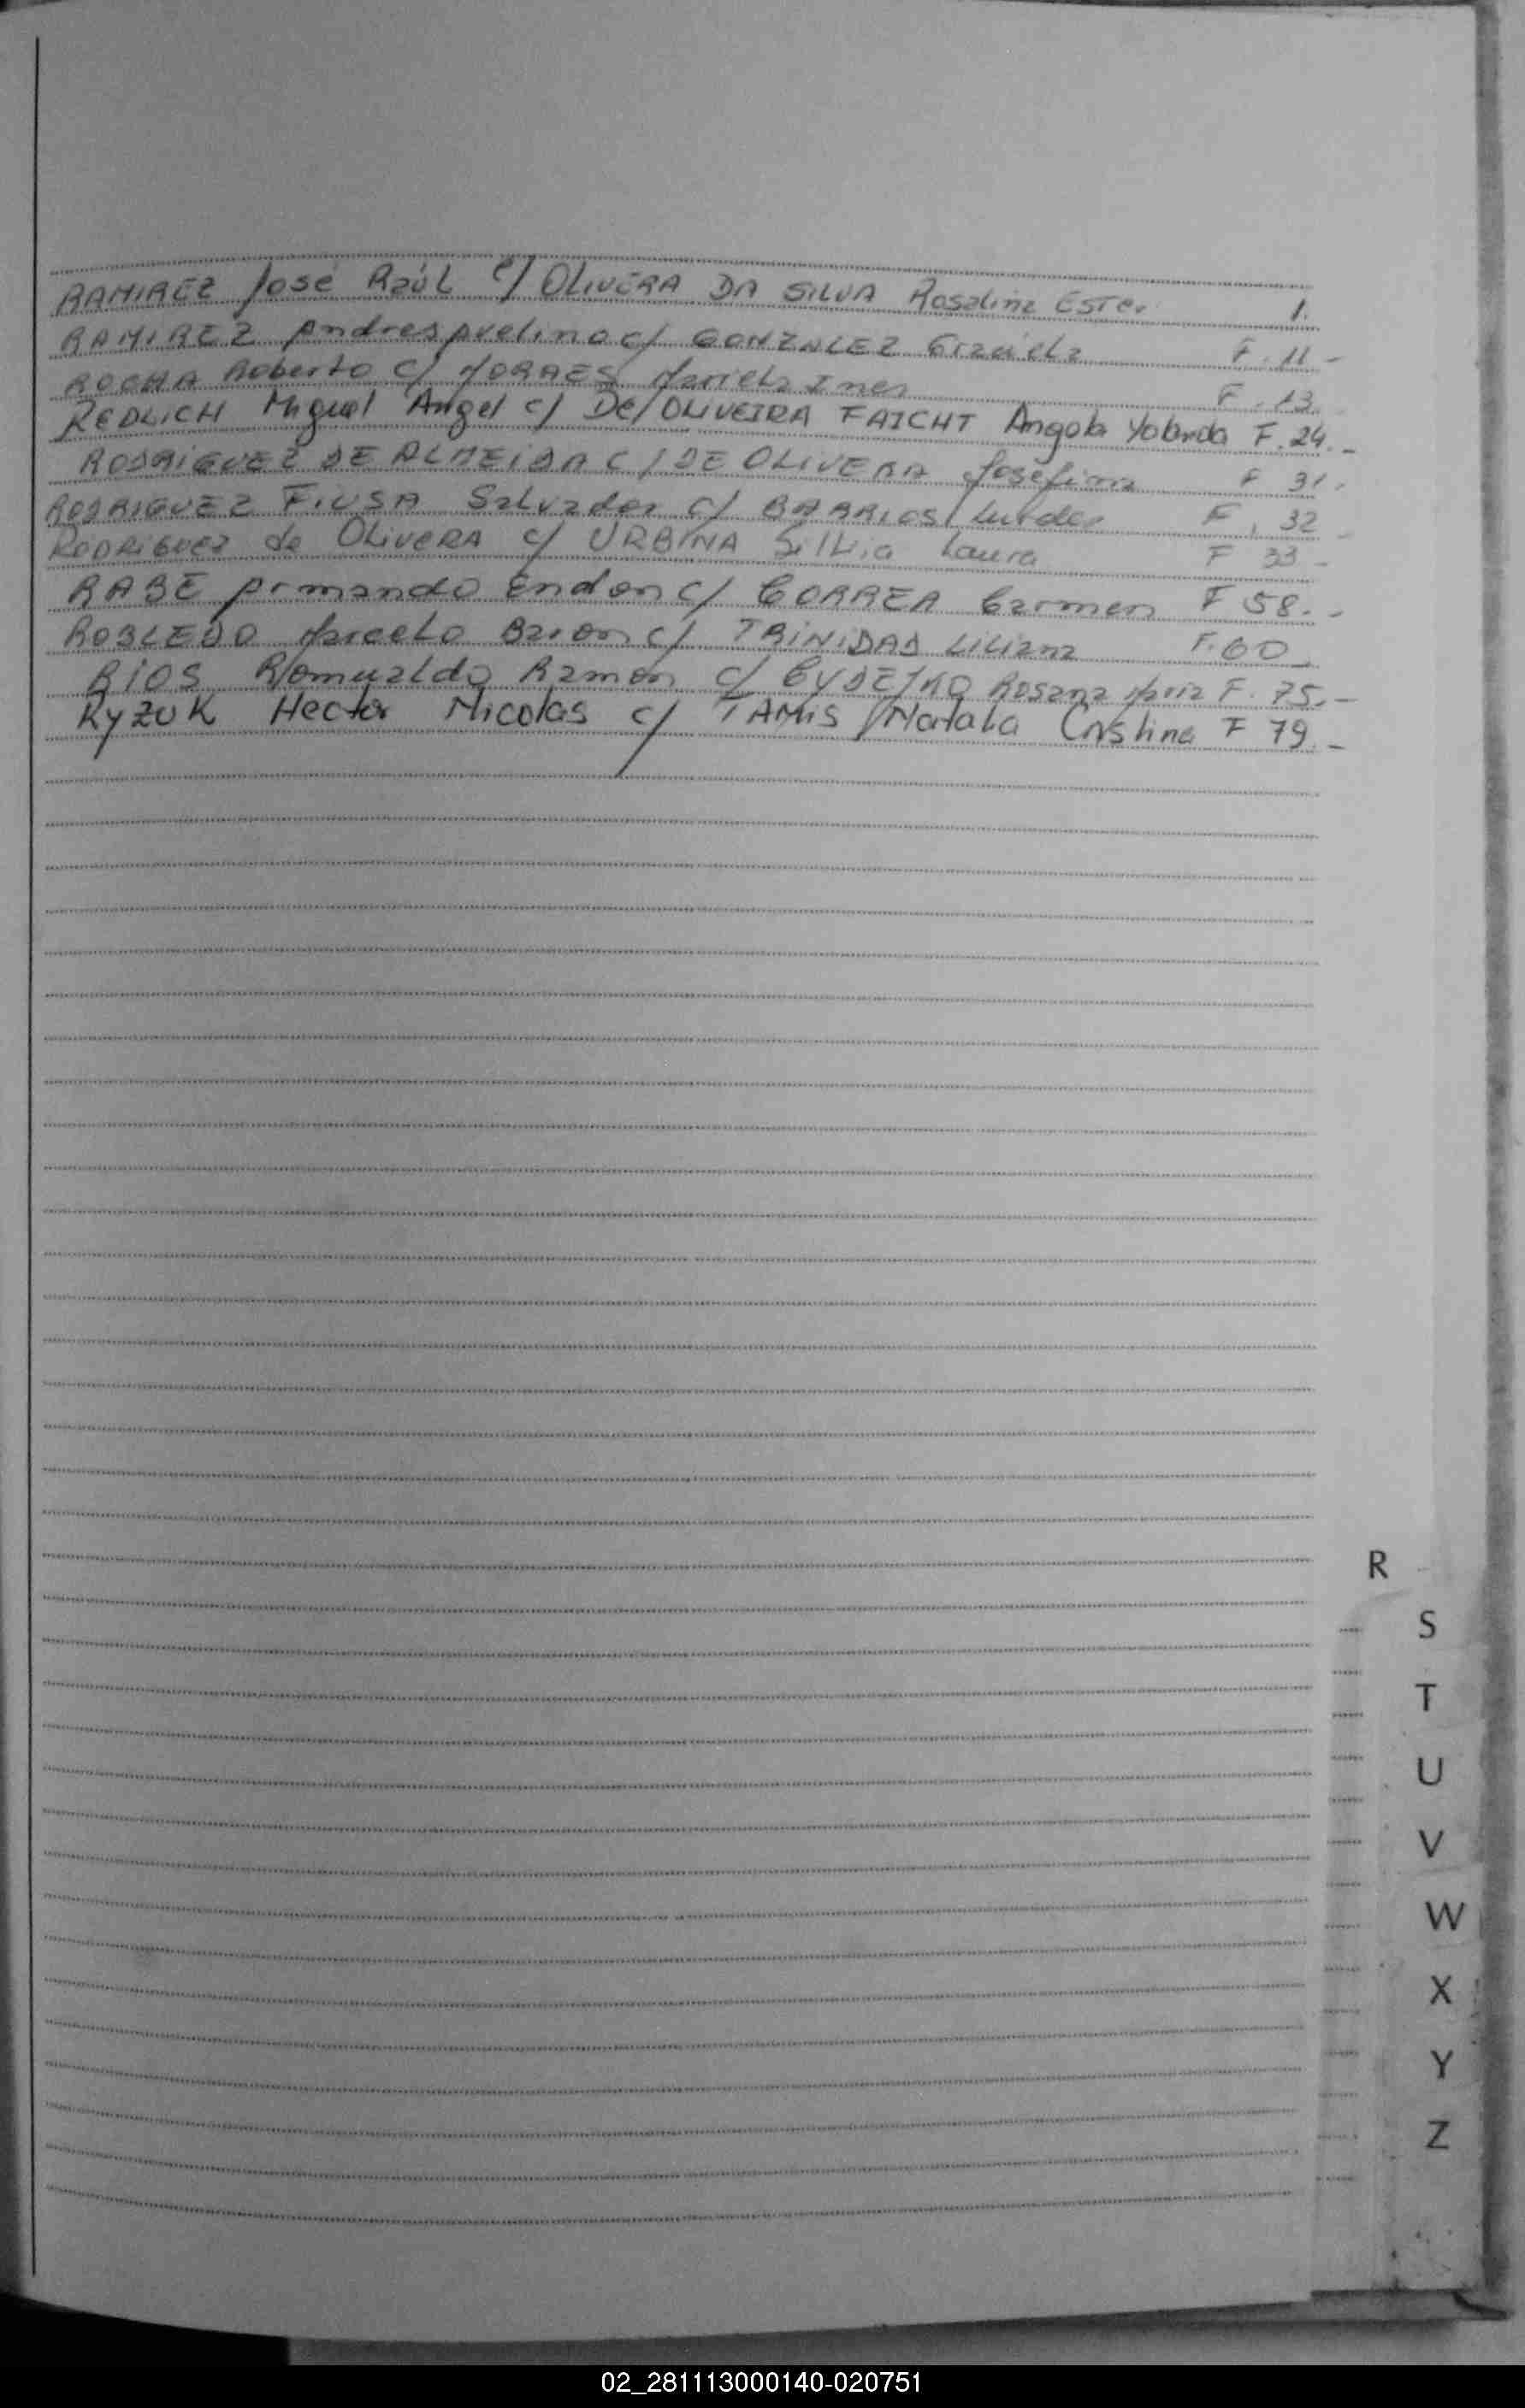 RAMIREZ José Raúl c/ OLIVERA DA SILVA Rosalina Ester 1.
RAMIREZ Andres Avelino c/ GONZALEZ Graciela F. 11 -
ROCHA Roberto c/ MORAES Mariela Ines F. 13.
REDLICH Miguel Angel c/ De OLIVEIRA FAICHT Angola Yolanda F. 24. -
RODRIGUEZ DE ALMEIDA C/ DE OLIVERA Josefina F 31.
RODRIGUEZ FIUSA Salvador c/ BARRIOS Lurdes F. 32 -
RODRIGUEZ de OLIVERA c/ URBINA Silvia Laura F 33 -
RABE Armando Endon c/ CORREA Carmen F 58. -
ROBLEDO Marcelo c/ TRINIDAD Liliana F. 60
RIOS Romualdo Ramón c/ Rosana Maria F. 75. -
RYZUK Hector Nicolas c/ TAMIS Natalia Cristina F 79. -
R
S
T
U
V
W
X
Y
Z
02_281113000140-020751